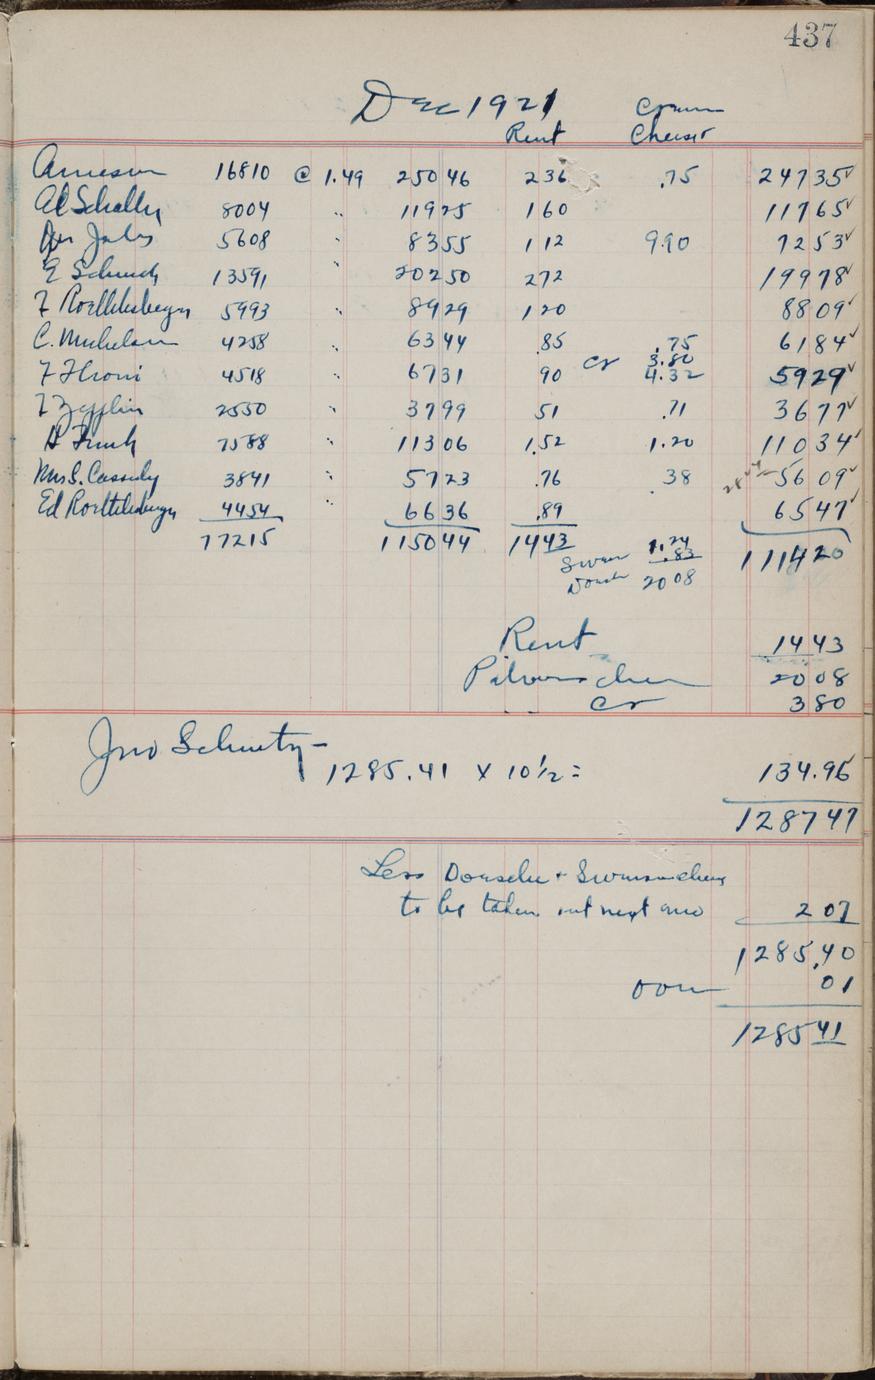 437
Dec 1921
Rent Cream Cheese
Arneson 16810 @ 1.49 250 46 236 .75 247 35 ✓
Al Schaller 8004 " 119 25 160 117 65 ✓
5608 " 83 55 112 9.90 72 53 ✓
E Schmidt 13591 " 202 50 272 199 78 ✓
F Roethlisberger 5993 " 89 29 120 88 09 ✓
C. Michelson 4258 " 63 44 .85 .75 61 84 ✓
cr 3.80
F 4518 " 67 31 90 4.32 59 29 ✓
F Zepplin 2550 " 37 99 51 .71 36 77 ✓
H Funk 7588 " 113 06 1.52 1.20 110 34 ✓
Mrs S. Cassidy 3841 " 57 23 .76 .38 56 09 ✓
Ed Roethlisberger 4454 " 66 36 .89 65 47 ✓
77215 1150 44 1443 1.24 1114 20
.83
20 08
Rent 14 43
20 08
cr 3 80
Jno Schuetz -
1285.41 X 10 1/2 = 134.96 ✓
1287 47
Less Doesche + Swanson cheese
to be taken out next mo 2 07
1285.40
01
1285 41